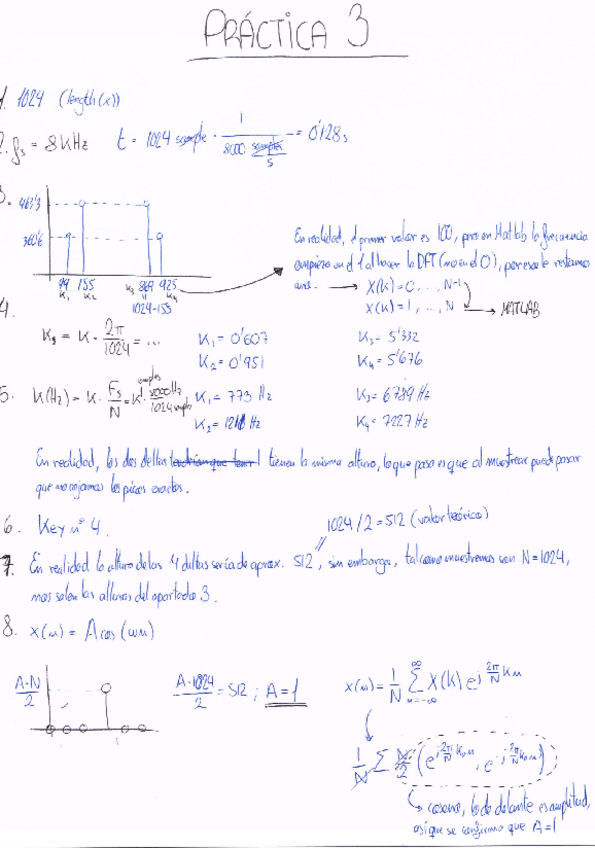 PRÁCTICA 3
1. 1024 (length(x))
2. fs = 8KHz t = 1024 sample · 1 / 8000 sample/s = 0'128 s
3. 463'3
360'6
99 155 869 925
K1 K2 K3 K4
1024-155
En realidad, el primer valor es 100, pero en Matlab la frecuencia
empieza en el 1 al hacer la DFT (no en el 0), por eso le restamos
uno. → X(K) = 0, ..., N-1
X(K) = 1, ..., N → MATLAB
4. K = K · 2π/1024 = ... K1 = 0'607 K3 = 5'332
K2 = 0'951 K4 = 5'676
5. K(Hz) = K · Fs/N = K · 8000Hz/1024 K1 = 773 Hz K3 = 6789 Hz
K2 = Hz K4 = 7227 Hz
En realidad, las dos deltas tienen la misma altura, lo que pasa es que al muestrear puede pasar
que no cojamos los picos exactos.
6. Key nº 4. 1024/2 = 512 (valor teórico)
7. En realidad la altura de las 4 deltas sería de aprox. 512, sin embargo, tal como muestreamos con N = 1024,
nos salen las alturas del apartado 3.
8. x(n) = A cos(ωn)
A·N/2 A·1024/2 = 512 ; A = 1 x(n) = 1/N Σ X(K) e^{j 2π/N Kn}
n=-∞ ∞
1/N Σ N/2 (e^{j 2π/N K₀n}, e^{-j 2π/N K₀n})
→ coseno, lo de delante es amplitud,
así que se confirma que A = 1